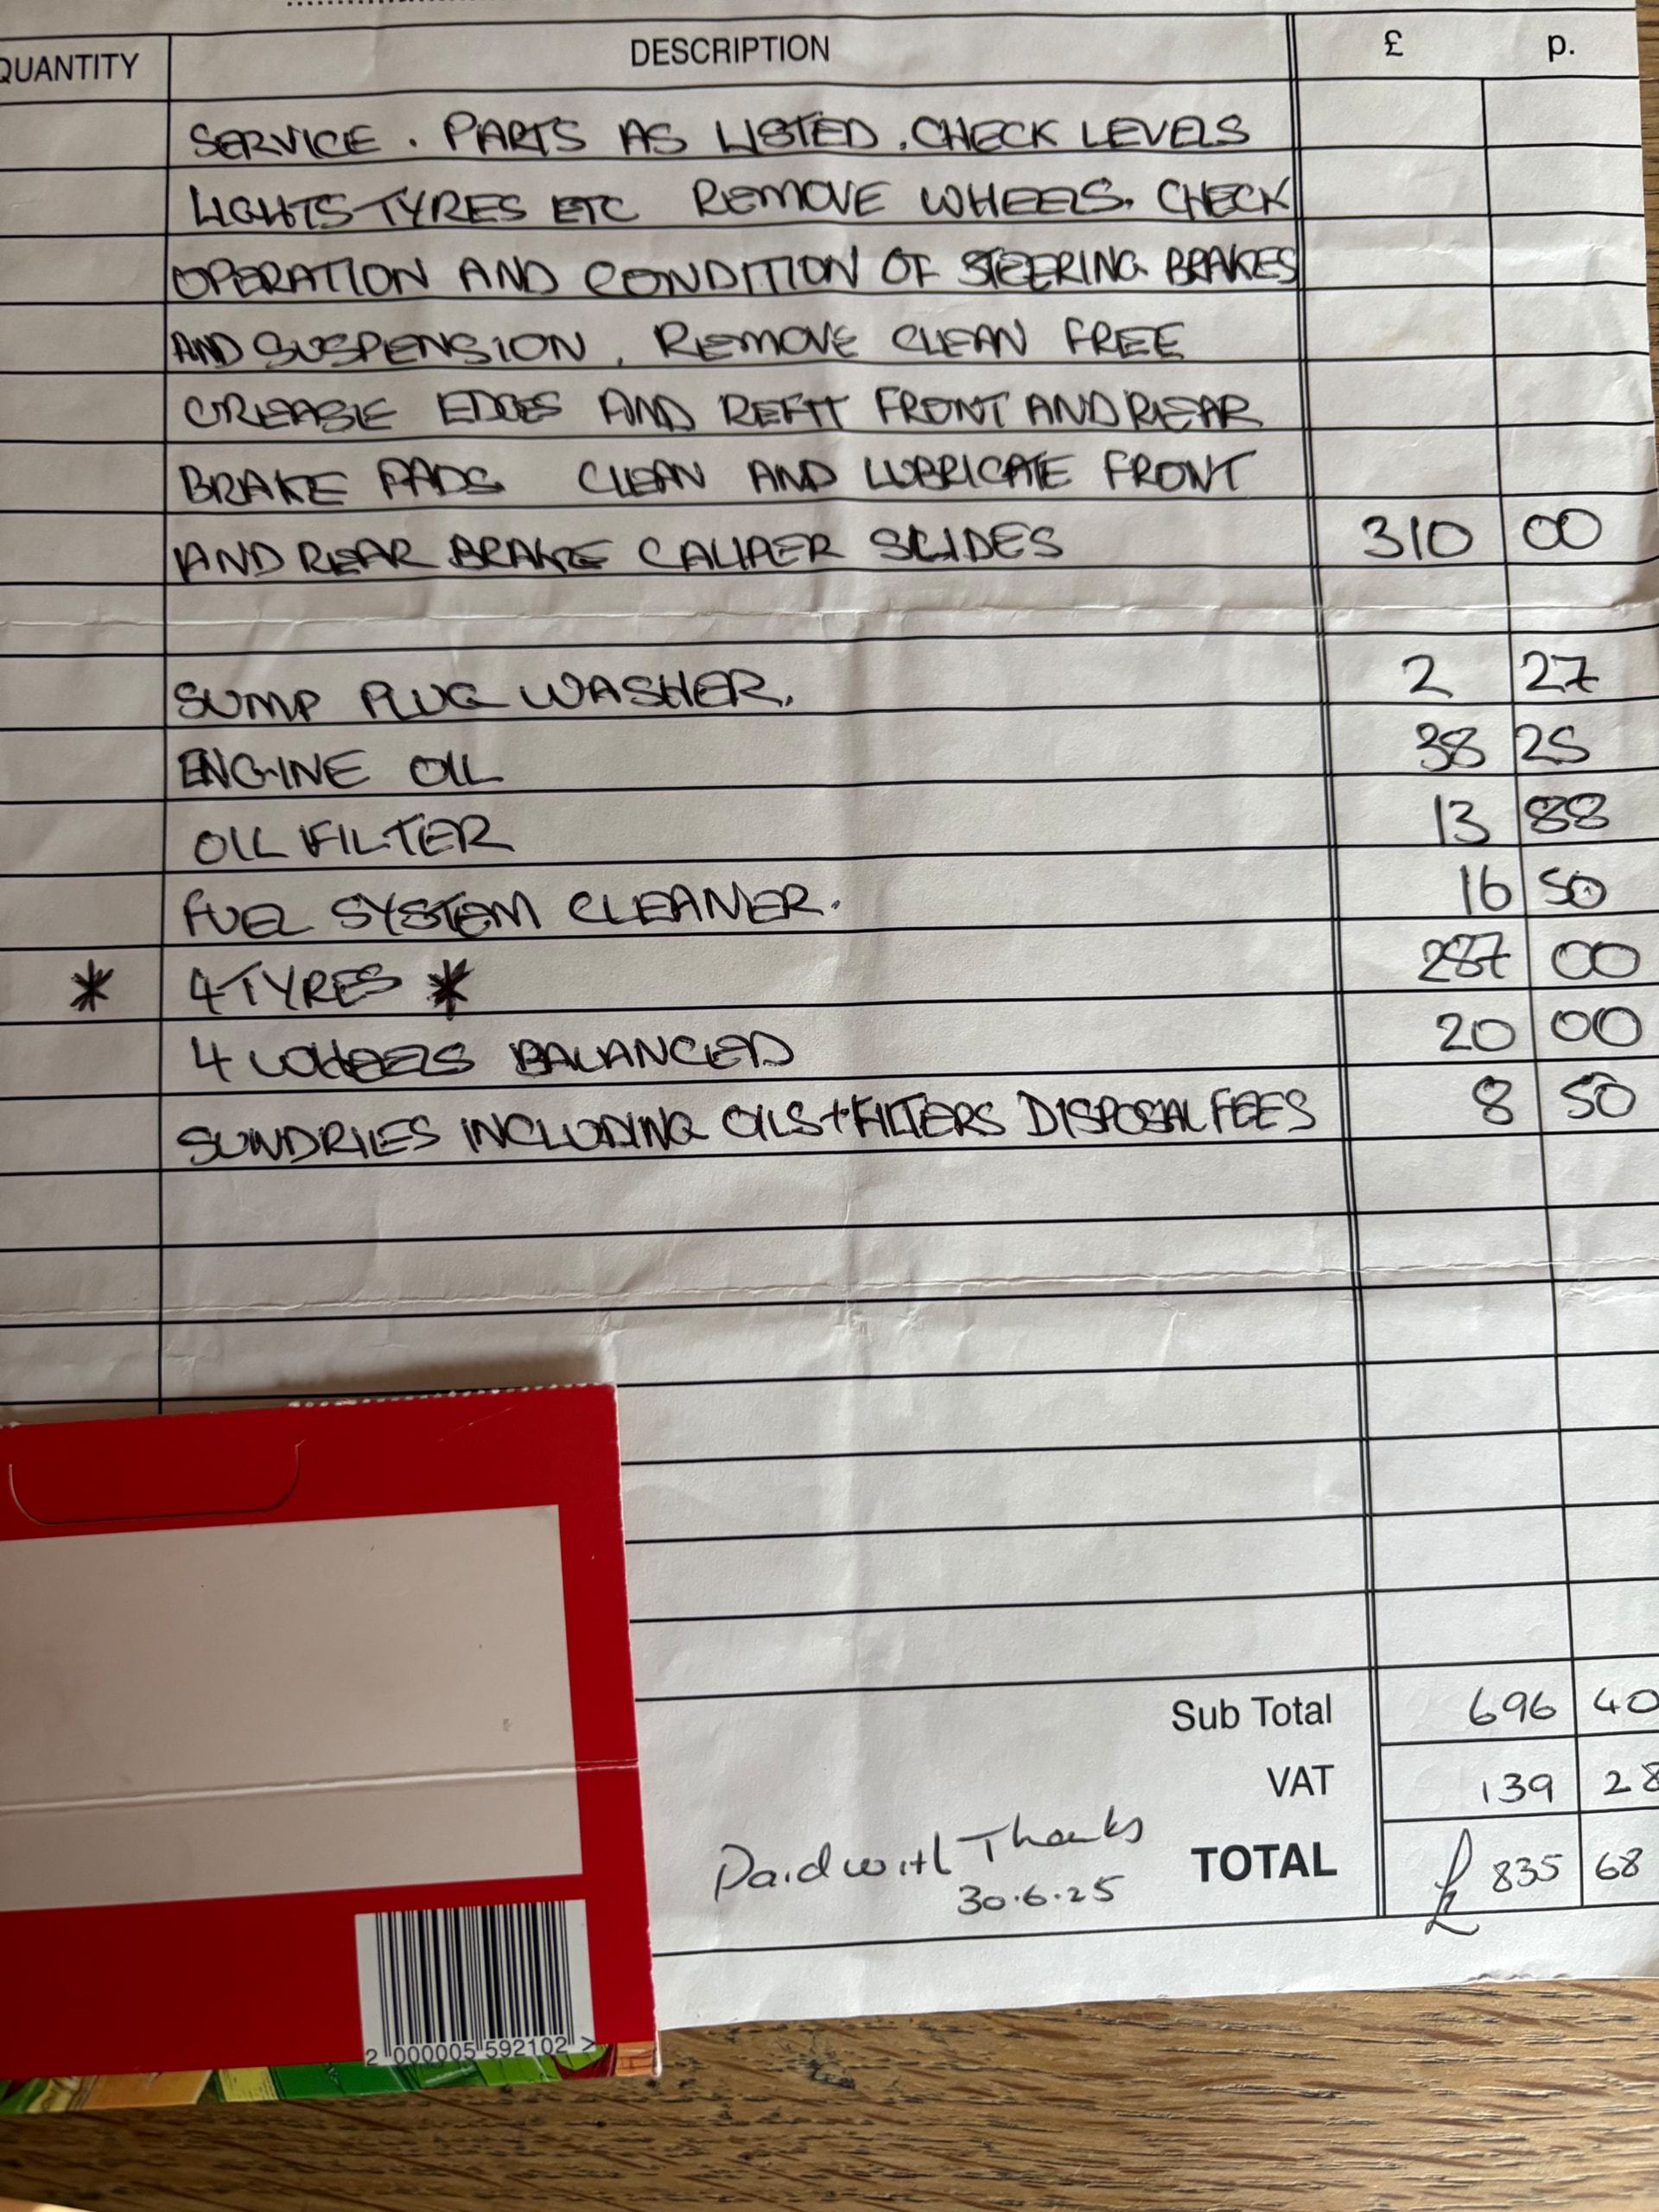 QUANTITY DESCRIPTION £ p.
SERVICE. PARTS AS LISTED. CHECK LEVELS
LIGHTS TYRES ETC REMOVE WHEELS. CHECK
OPERATION AND CONDITION OF STEERING BRAKES
AND SUSPENSION. REMOVE CLEAN FREE
GREASE EDGES AND REFIT FRONT AND REAR
BRAKE PADS CLEAN AND LUBRICATE FRONT
AND REAR BRAKE CALIPER SLIDES 310 00
SUMP PLUG WASHER. 2 27
ENGINE OIL 38 25
OIL FILTER 13 88
FUEL SYSTEM CLEANER. 16 50
* 4 TYRES * 287 00
4 WHEELS BALANCED 20 00
SUNDRIES INCLUDING OILS + FILTERS DISPOSAL FEES 8 50
Sub Total 696 40
VAT 139 28
Paid with Thanks TOTAL £ 835 68
30.6.25
2 000005 592102 >